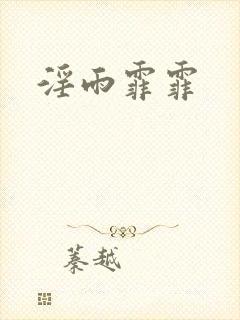 淫雨霏霏
蓁越